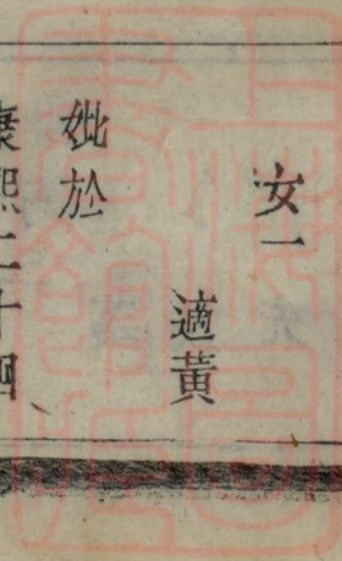 女一
適黃
妣於
康熙二十四